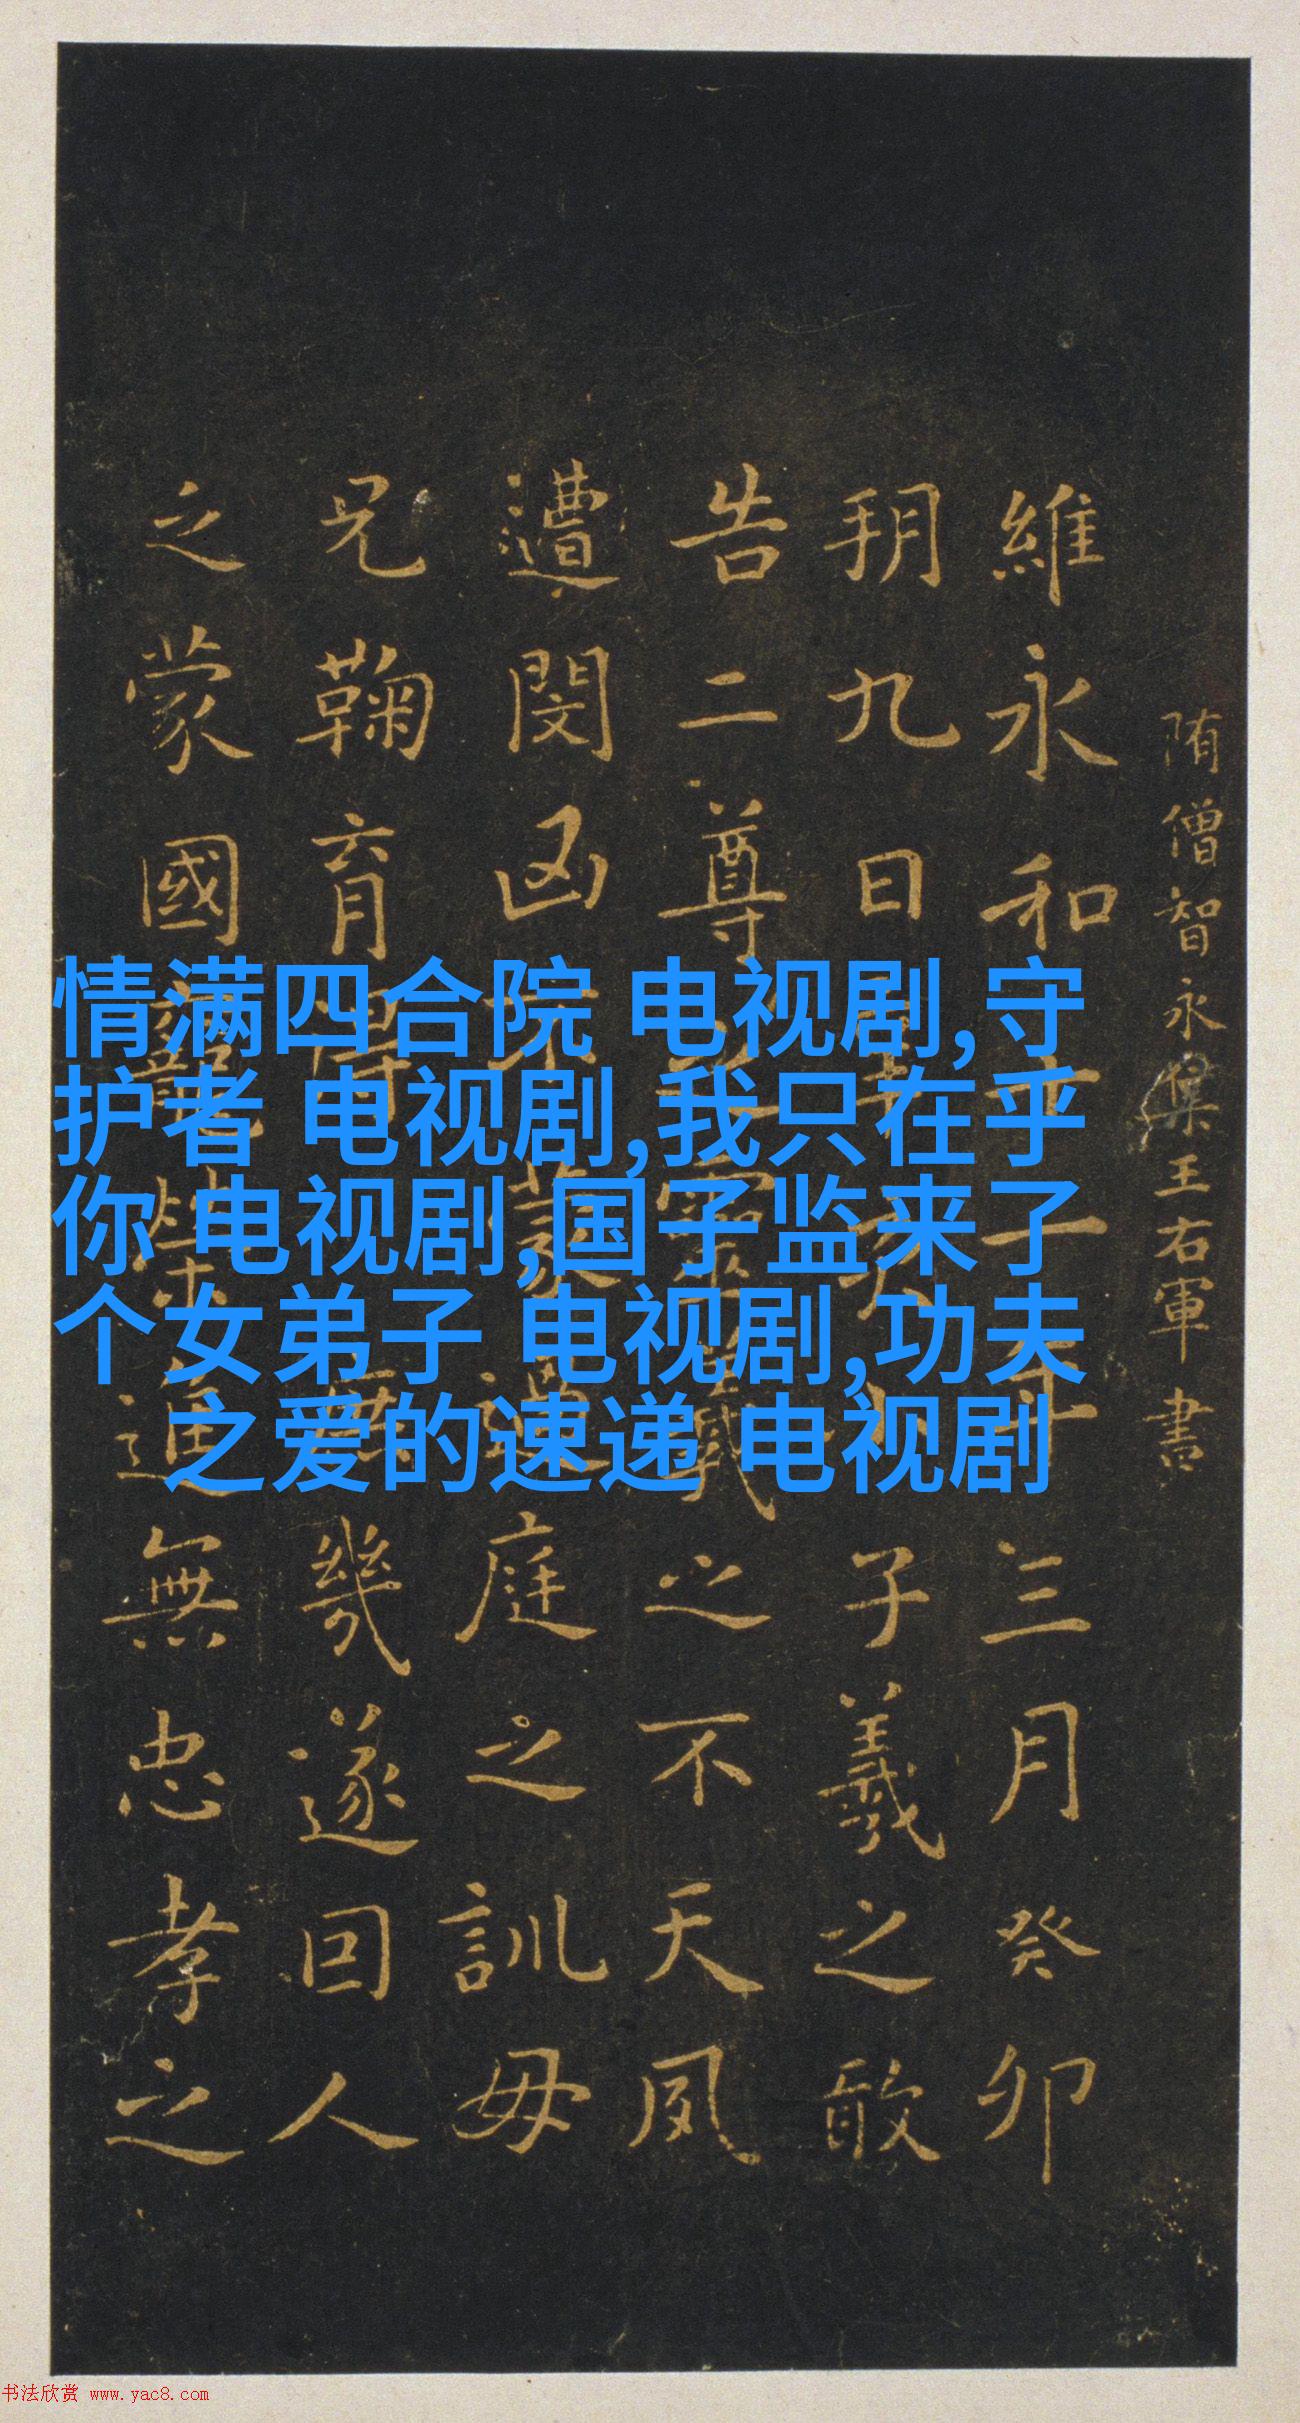 隋僧智永集王右軍書
維永和十一年三月癸卯
朔九日辛亥小子羲之敢
告二尊之靈羲之不天夙
遭閔凶不蒙過庭之訓毋
兄鞠育得漸庶幾遂因人
之蒙國寵榮進無忠孝之
情满四合院 电视剧,守
护者 电视剧,我只在乎
你 电视剧,国子监来了
个女弟子 电视剧,功夫
之爱的速递 电视剧
书法欣赏 www.yac8.com